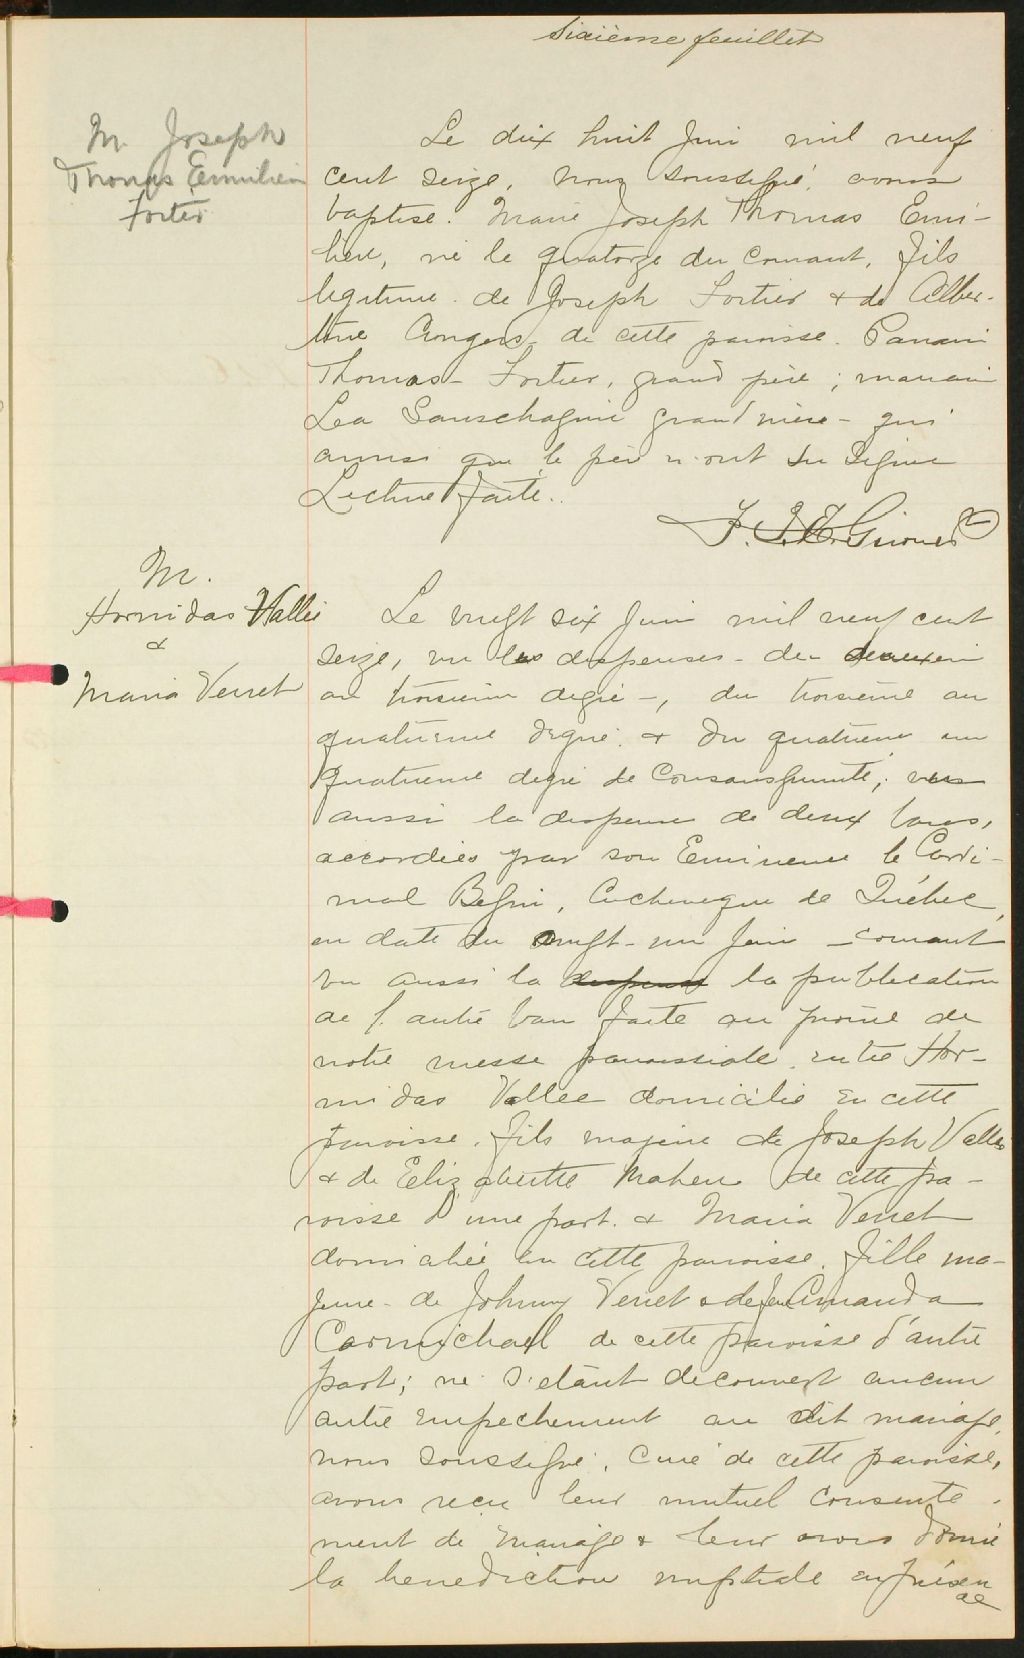 Sixième feuillet
M. Joseph
Thomas Emilien
Fortier
Le dix huit Juin mil neuf
cent seize, nous soussigné, avons
baptisé. Marie Joseph Thomas Emi-
lien, né le quatorze du courant, fils
légitime de Joseph Fortier & de Alber-
tine Angers de cette paroisse. Parrain
Thomas Fortier, grand père ; marraine
Lea Sanschagrin grand'mère - qui
ainsi que le père n'ont su signer
Lecture faite.
M.
Hormidas Vallée
&
Maria Verret
Le vingt six Juin mil neuf cent
seize, vu les dispenses du deuxième
au troisième degré -, du troisième au
quatrième degré & du quatrième au
quatrième degré de consanguinité; vu
aussi la dispense de deux bans,
accordées par son Eminence le Cardi-
nal Bégin, Archevêque de Québec,
en date du vingt-un Juin courant
vu aussi la dispense la publication
de l'autre ban faite au prône de
notre messe paroissiale, entre Hor-
midas Vallée domicilié en cette
paroisse, fils majeur de Joseph Vallée
& de Elizabette Maheu de cette pa-
roisse d'une part. & Maria Verret
domiciliée en cette paroisse, fille ma-
jeure de Johnny Verret & de feu Amanda
Carmichael de cette paroisse d'autre
part; ne s'étant découvert aucun
autre empêchement au dit mariage,
nous soussigné, Curé de cette paroisse,
avons reçu leur mutuel consente-
ment de mariage & leur avons donné
la bénédiction nuptiale en présen
ce